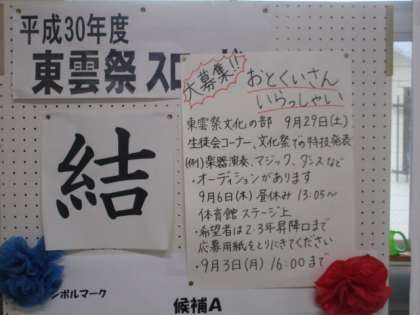 平成30年度
東雲祭スロ
結
大募集!!
おとくいさん
いらっしゃい
東雲祭文化の部 9月29日(土)
生徒会コーナー、文化祭での特技発表
(例)楽器演奏、マジック、ダンスなど
・オーディションがあります
9月6日(木)昼休み 13:05～
体育館ステージ上
・希望者は2・3年昇降口まで
応募用紙をとりにきてください
・9月3日(月)16:00まで
ンボルマーク
候補A